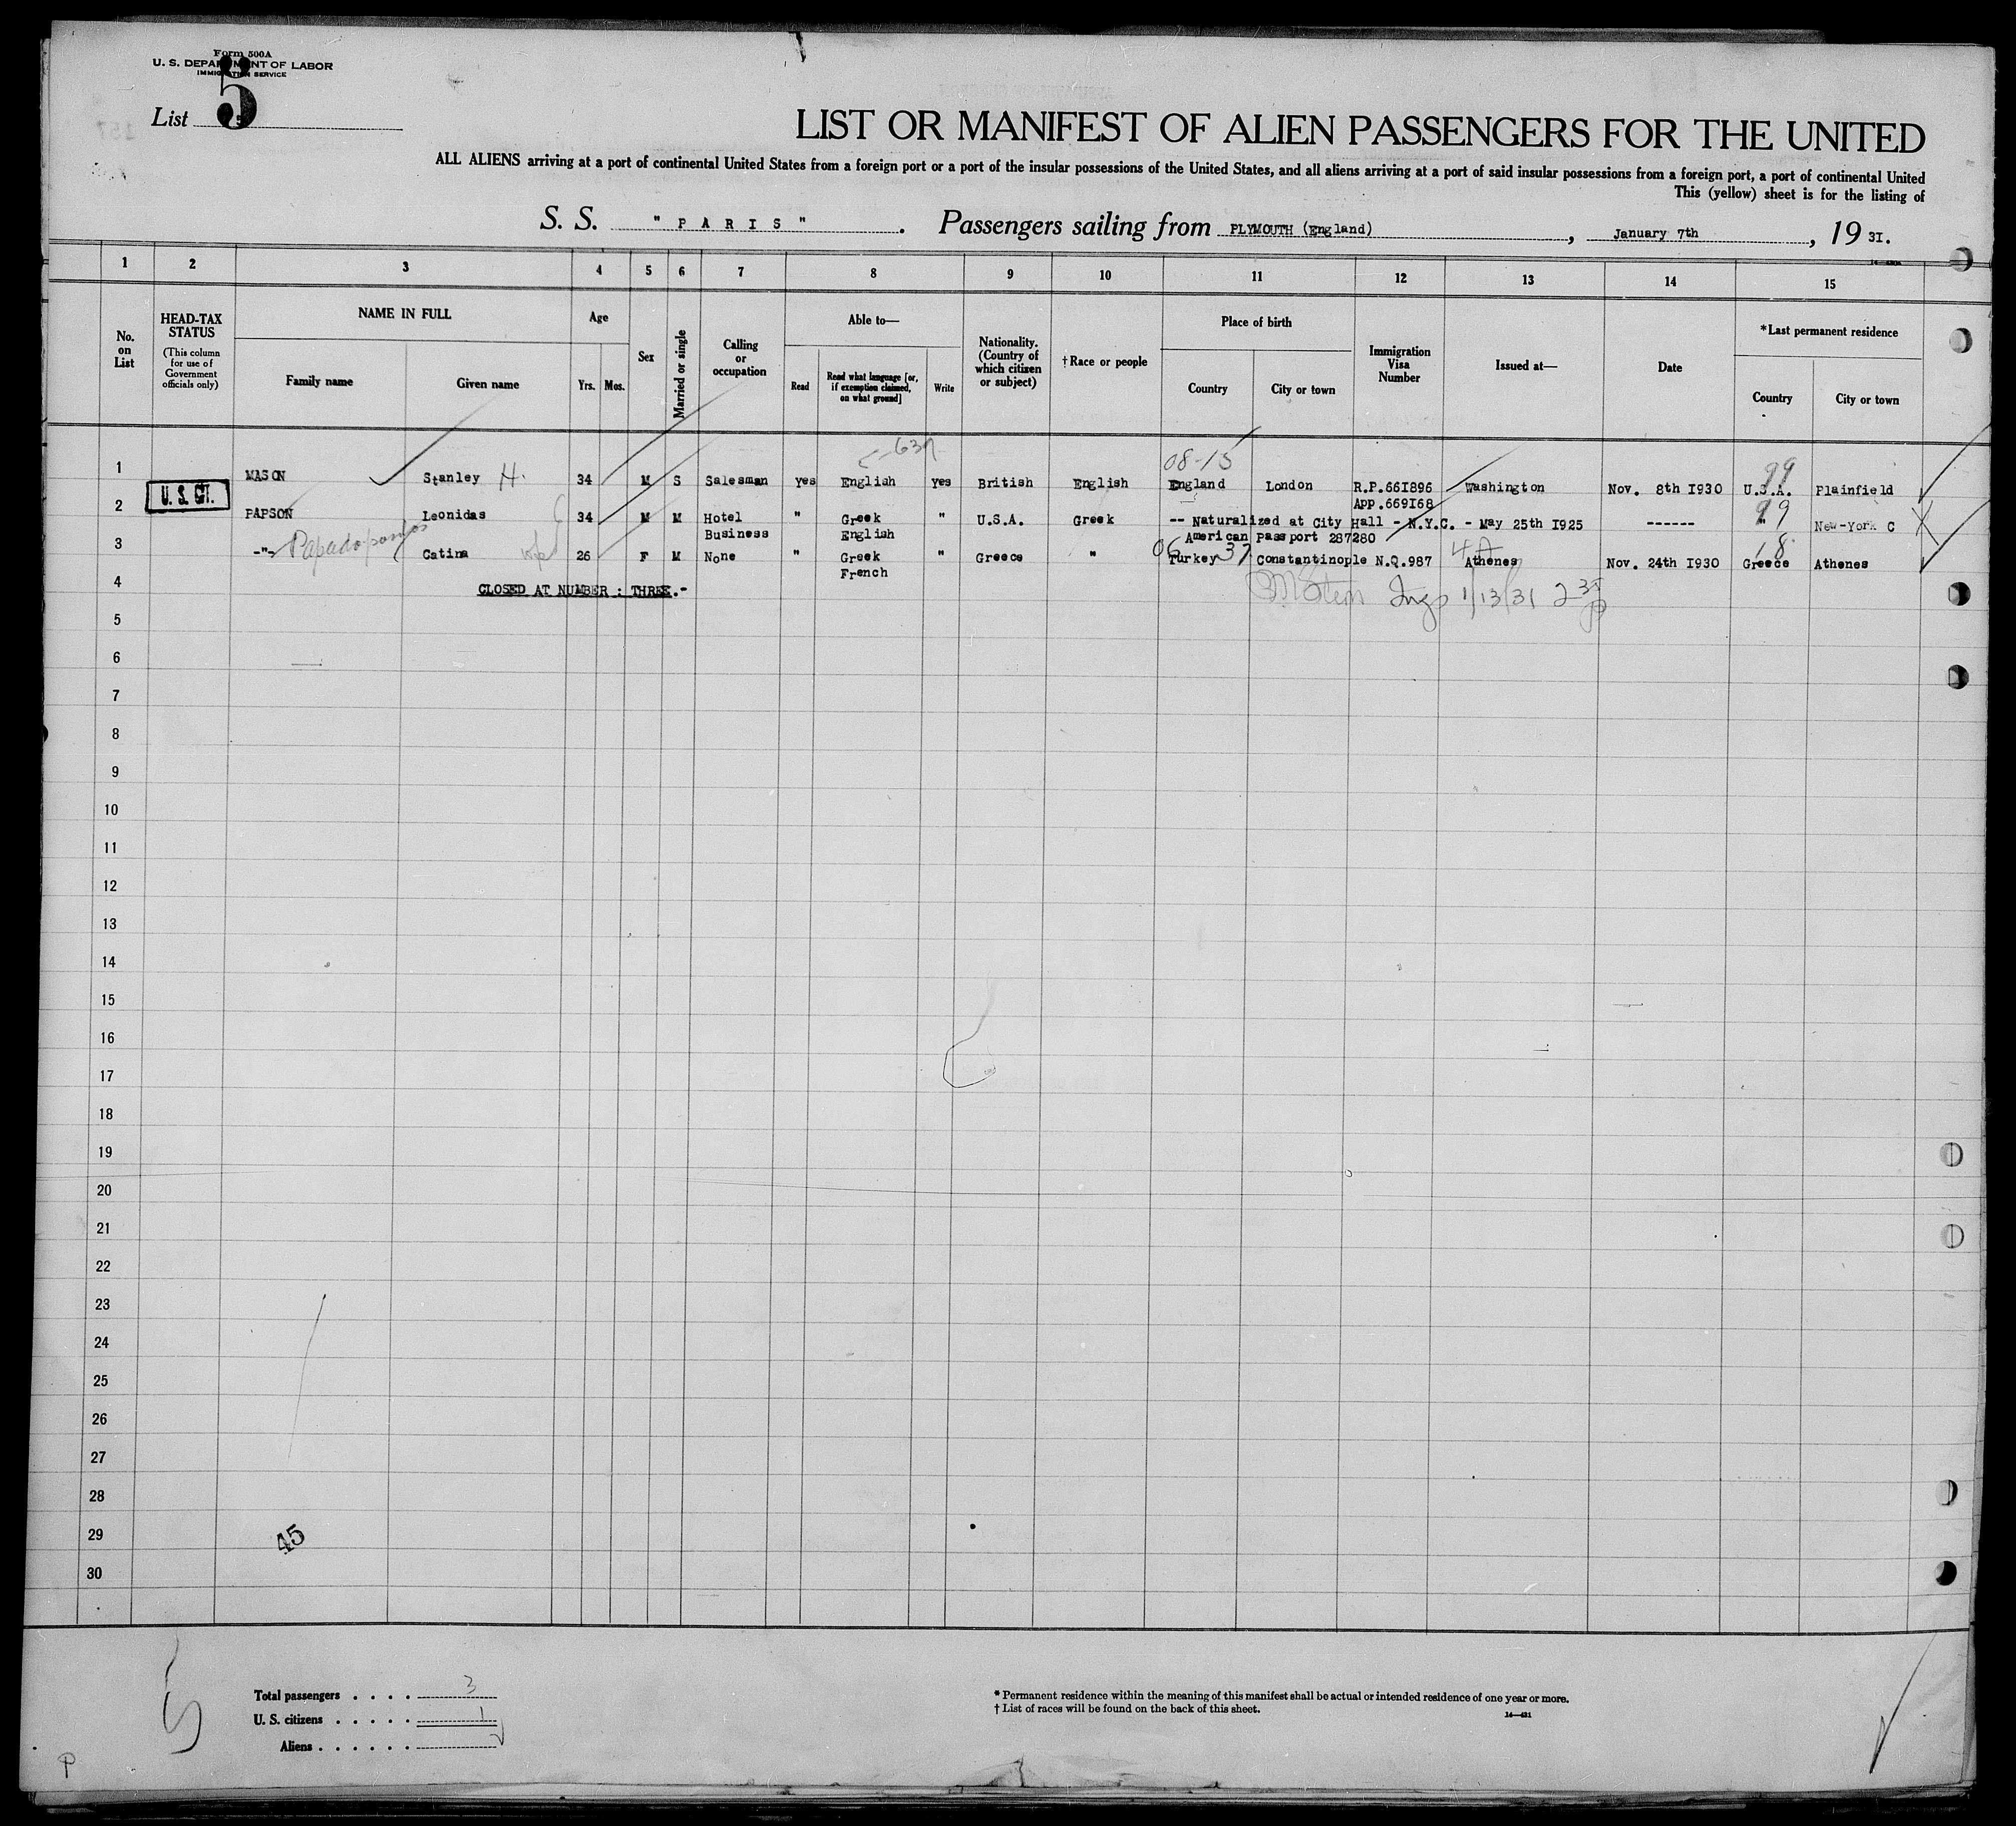 Form 500A
U. S. DEPARTMENT OF LABOR
IMMIGRATION SERVICE
List 5
LIST OR MANIFEST OF ALIEN PASSENGERS FOR THE UNITED
ALL ALIENS arriving at a port of continental United States from a foreign port or a port of the insular possessions of the United States, and all aliens arriving at a port of said insular possessions from a foreign port, a port of continental United
This (yellow) sheet is for the listing of
S. S. " P A R I S " . Passengers sailing from PLYMOUTH (England) , January 7th , 19 3I.
1 2 3 4 5 6 7 8 9 10 11 12 13 14 15
No. on List
HEAD-TAX STATUS
(This column for use of Government officials only)
NAME IN FULL
Family name Given name
Age
Yrs. Mos.
Sex
Married or single
Calling or occupation
Able to—
Read
Read what language [or, if exemption claimed, on what ground]
Write
Nationality. (Country of which citizen or subject)
† Race or people
Place of birth
Country City or town
Immigration Visa Number
Issued at—
Date
*Last permanent residence
Country City or town
08-15 99
1 MASON Stanley H. 34 M S Salesman yes English yes British English England London R.P.66I896 Washington Nov. 8th I930 U.S.A. Plainfield
APP.669I68
U. S. CIT.
2 PAPSON Leonidas 34 M M Hotel " Greek " U.S.A. Greek -- Naturalized at City Hall - N.Y.C. - May 25th I925 ------ " New-York C
99
Business English American Passport 287280
3 -"- Papadopoulos Catina wife 26 F M None " Greek " Greece " Turkey Constantinople N.Q.987 Athenes Nov. 24th I930 Greece Athenes
06 37
French
4 CLOSED AT NUMBER : THREE.-
Stein Insp 1/13/31 2 35
5
6
7
8
9
10
11
12
13
14
15
16
17
18
19
20
21
22
23
24
25
26
27
28
29
45
30
Total passengers . . . . 3
U. S. citizens . . . . . 1
Aliens . . . . . .
* Permanent residence within the meaning of this manifest shall be actual or intended residence of one year or more.
† List of races will be found on the back of this sheet.
14—421
P